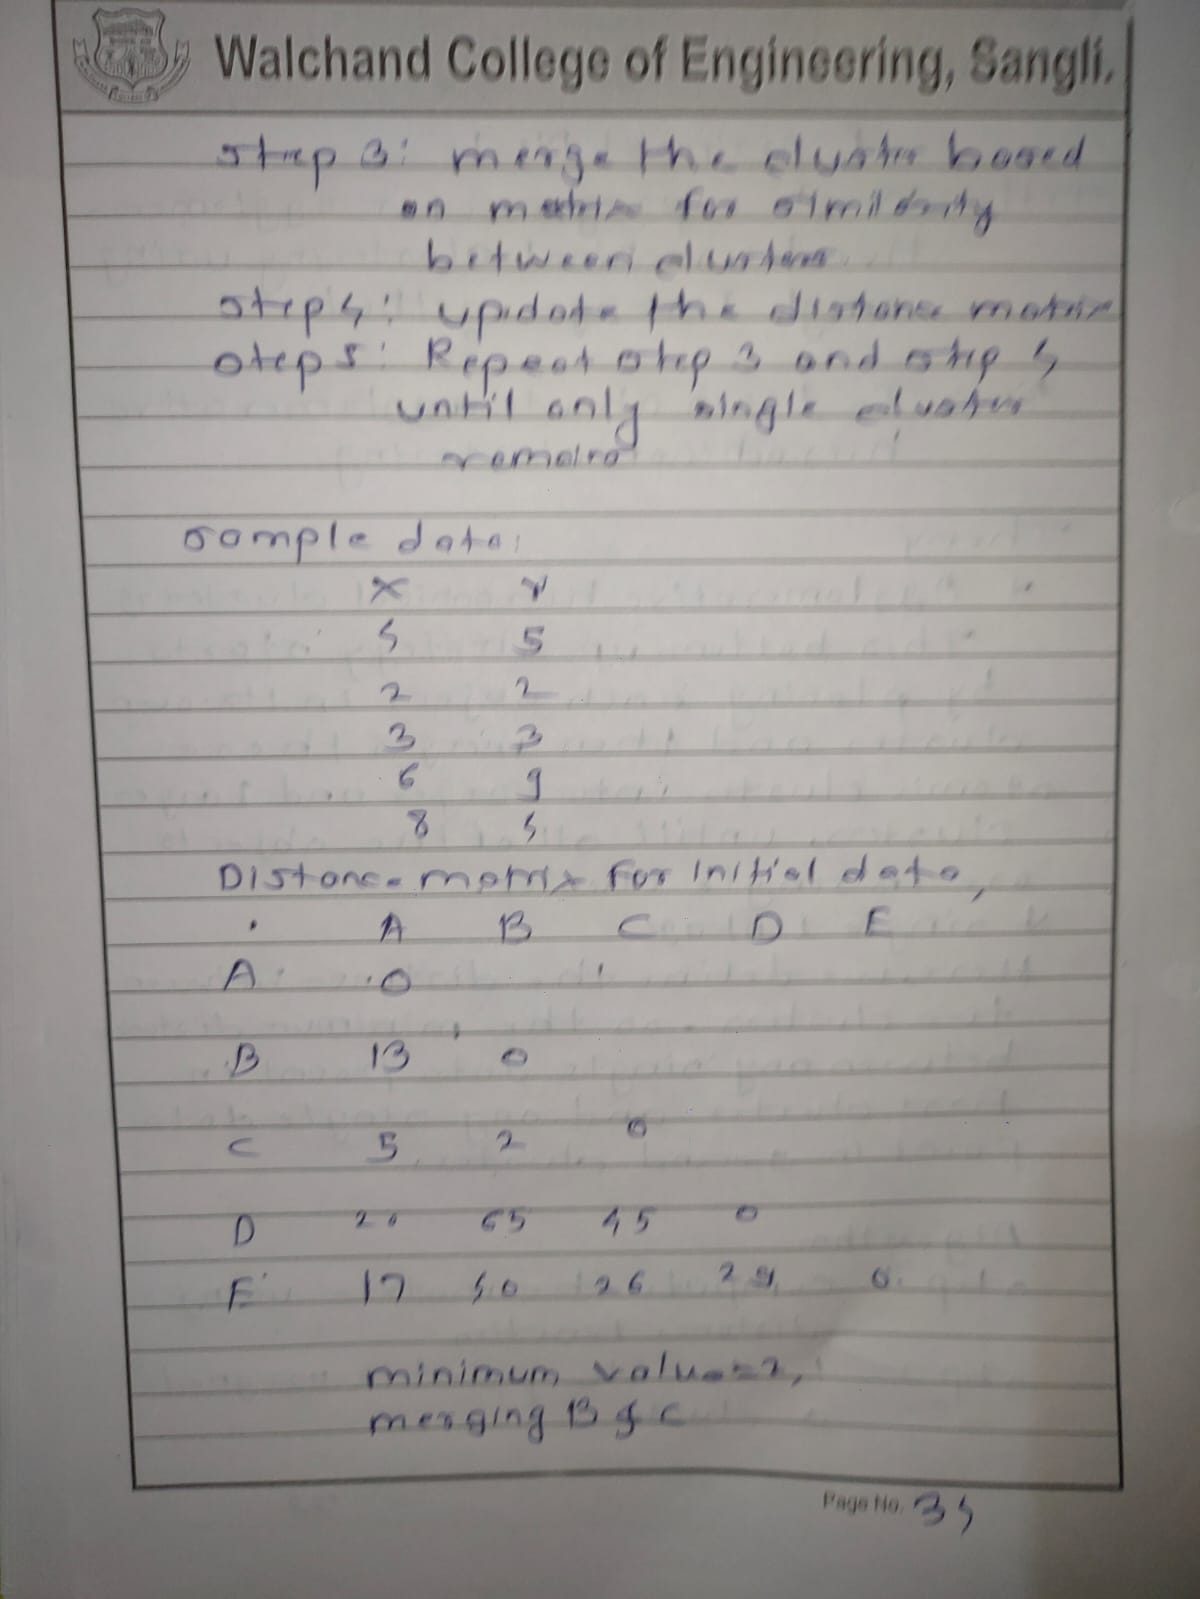 Walchand College of Engineering, Sangli.
step 3: merge the cluster based
on metrix for similarity
between clusters.
step 4: update the distance matrix
step 5: Repeat step 3 and step 4
until only single cluster
remains
sample data:
X Y
4 5
2 2
3 3
6 9
8 4
Distance matrix for initial data,
A B C D E
A 0
B 13 0
C 5 2 0
D 20 65 45 0
E 17 40 26 29 0
minimum value=2,
merging B & C
Page No. 34